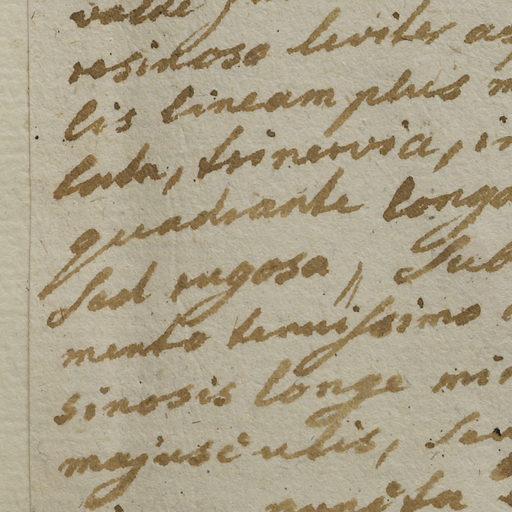 valde
resinoso leviter as
lis lineam plus m
lata, trinervia, in
quadrante longa
sed rugosa, sub
mento tenuissimo
sinosis longe min
majusculis, seu
puncta